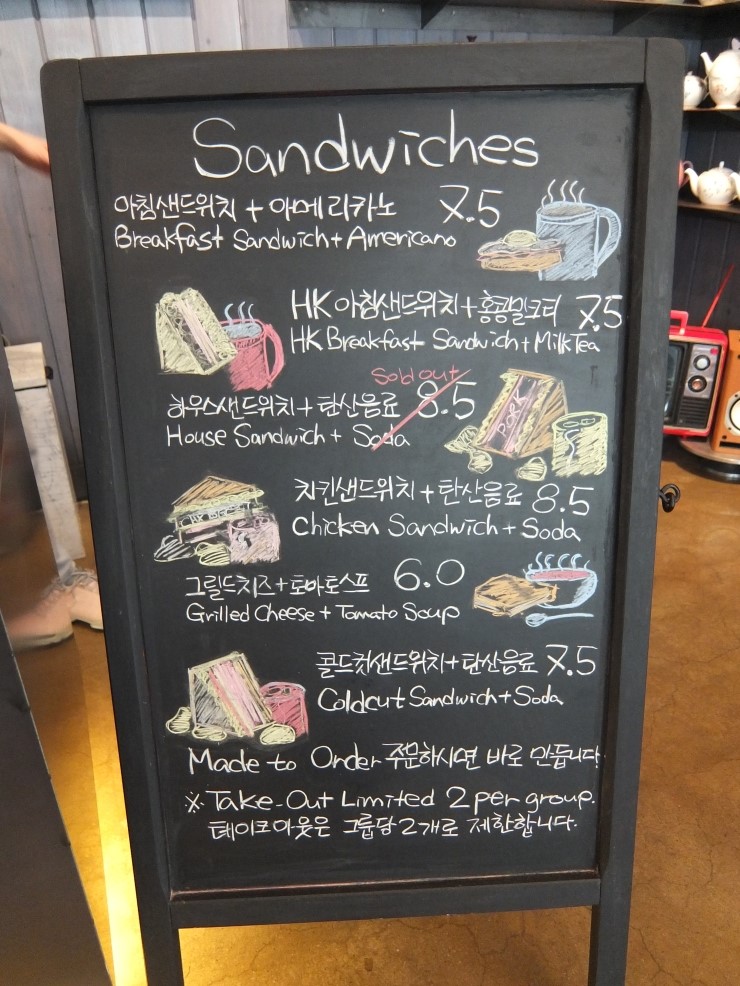 Sandwiches
아침샌드위치 + 아메리카노 7.5
Breakfast Sandwich + Americano
HK 아침샌드위치 + 홍콩밀크티 7.5
HK Breakfast Sandwich + Milk Tea
Sold out
하우스샌드위치 + 탄산음료 8.5
House Sandwich + Soda
PORK
치킨샌드위치 + 탄산음료 8.5
Chicken Sandwich + Soda
그릴드치즈 + 토마토스프 6.0
Grilled Cheese + Tomato Soup
콜드컷샌드위치 + 탄산음료 7.5
Coldcut Sandwich + Soda
Made to Order 주문하시면 바로 만듭니다
※ Take-Out Limited 2 per group.
테이크아웃은 그룹당 2개로 제한합니다.